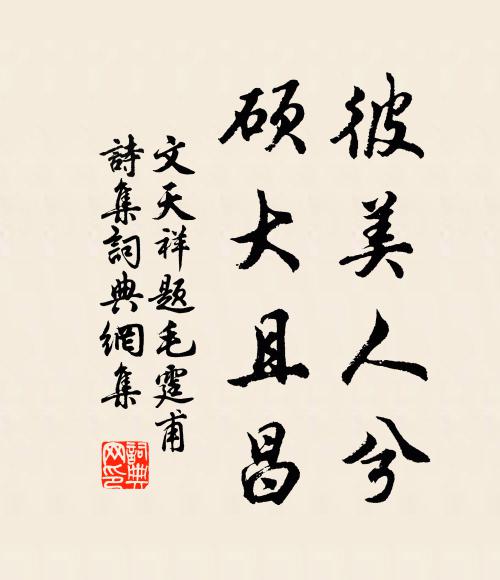 彼美人兮
硕大且昌
文天祥题毛霆甫
詩集詞典網集
詞典网印